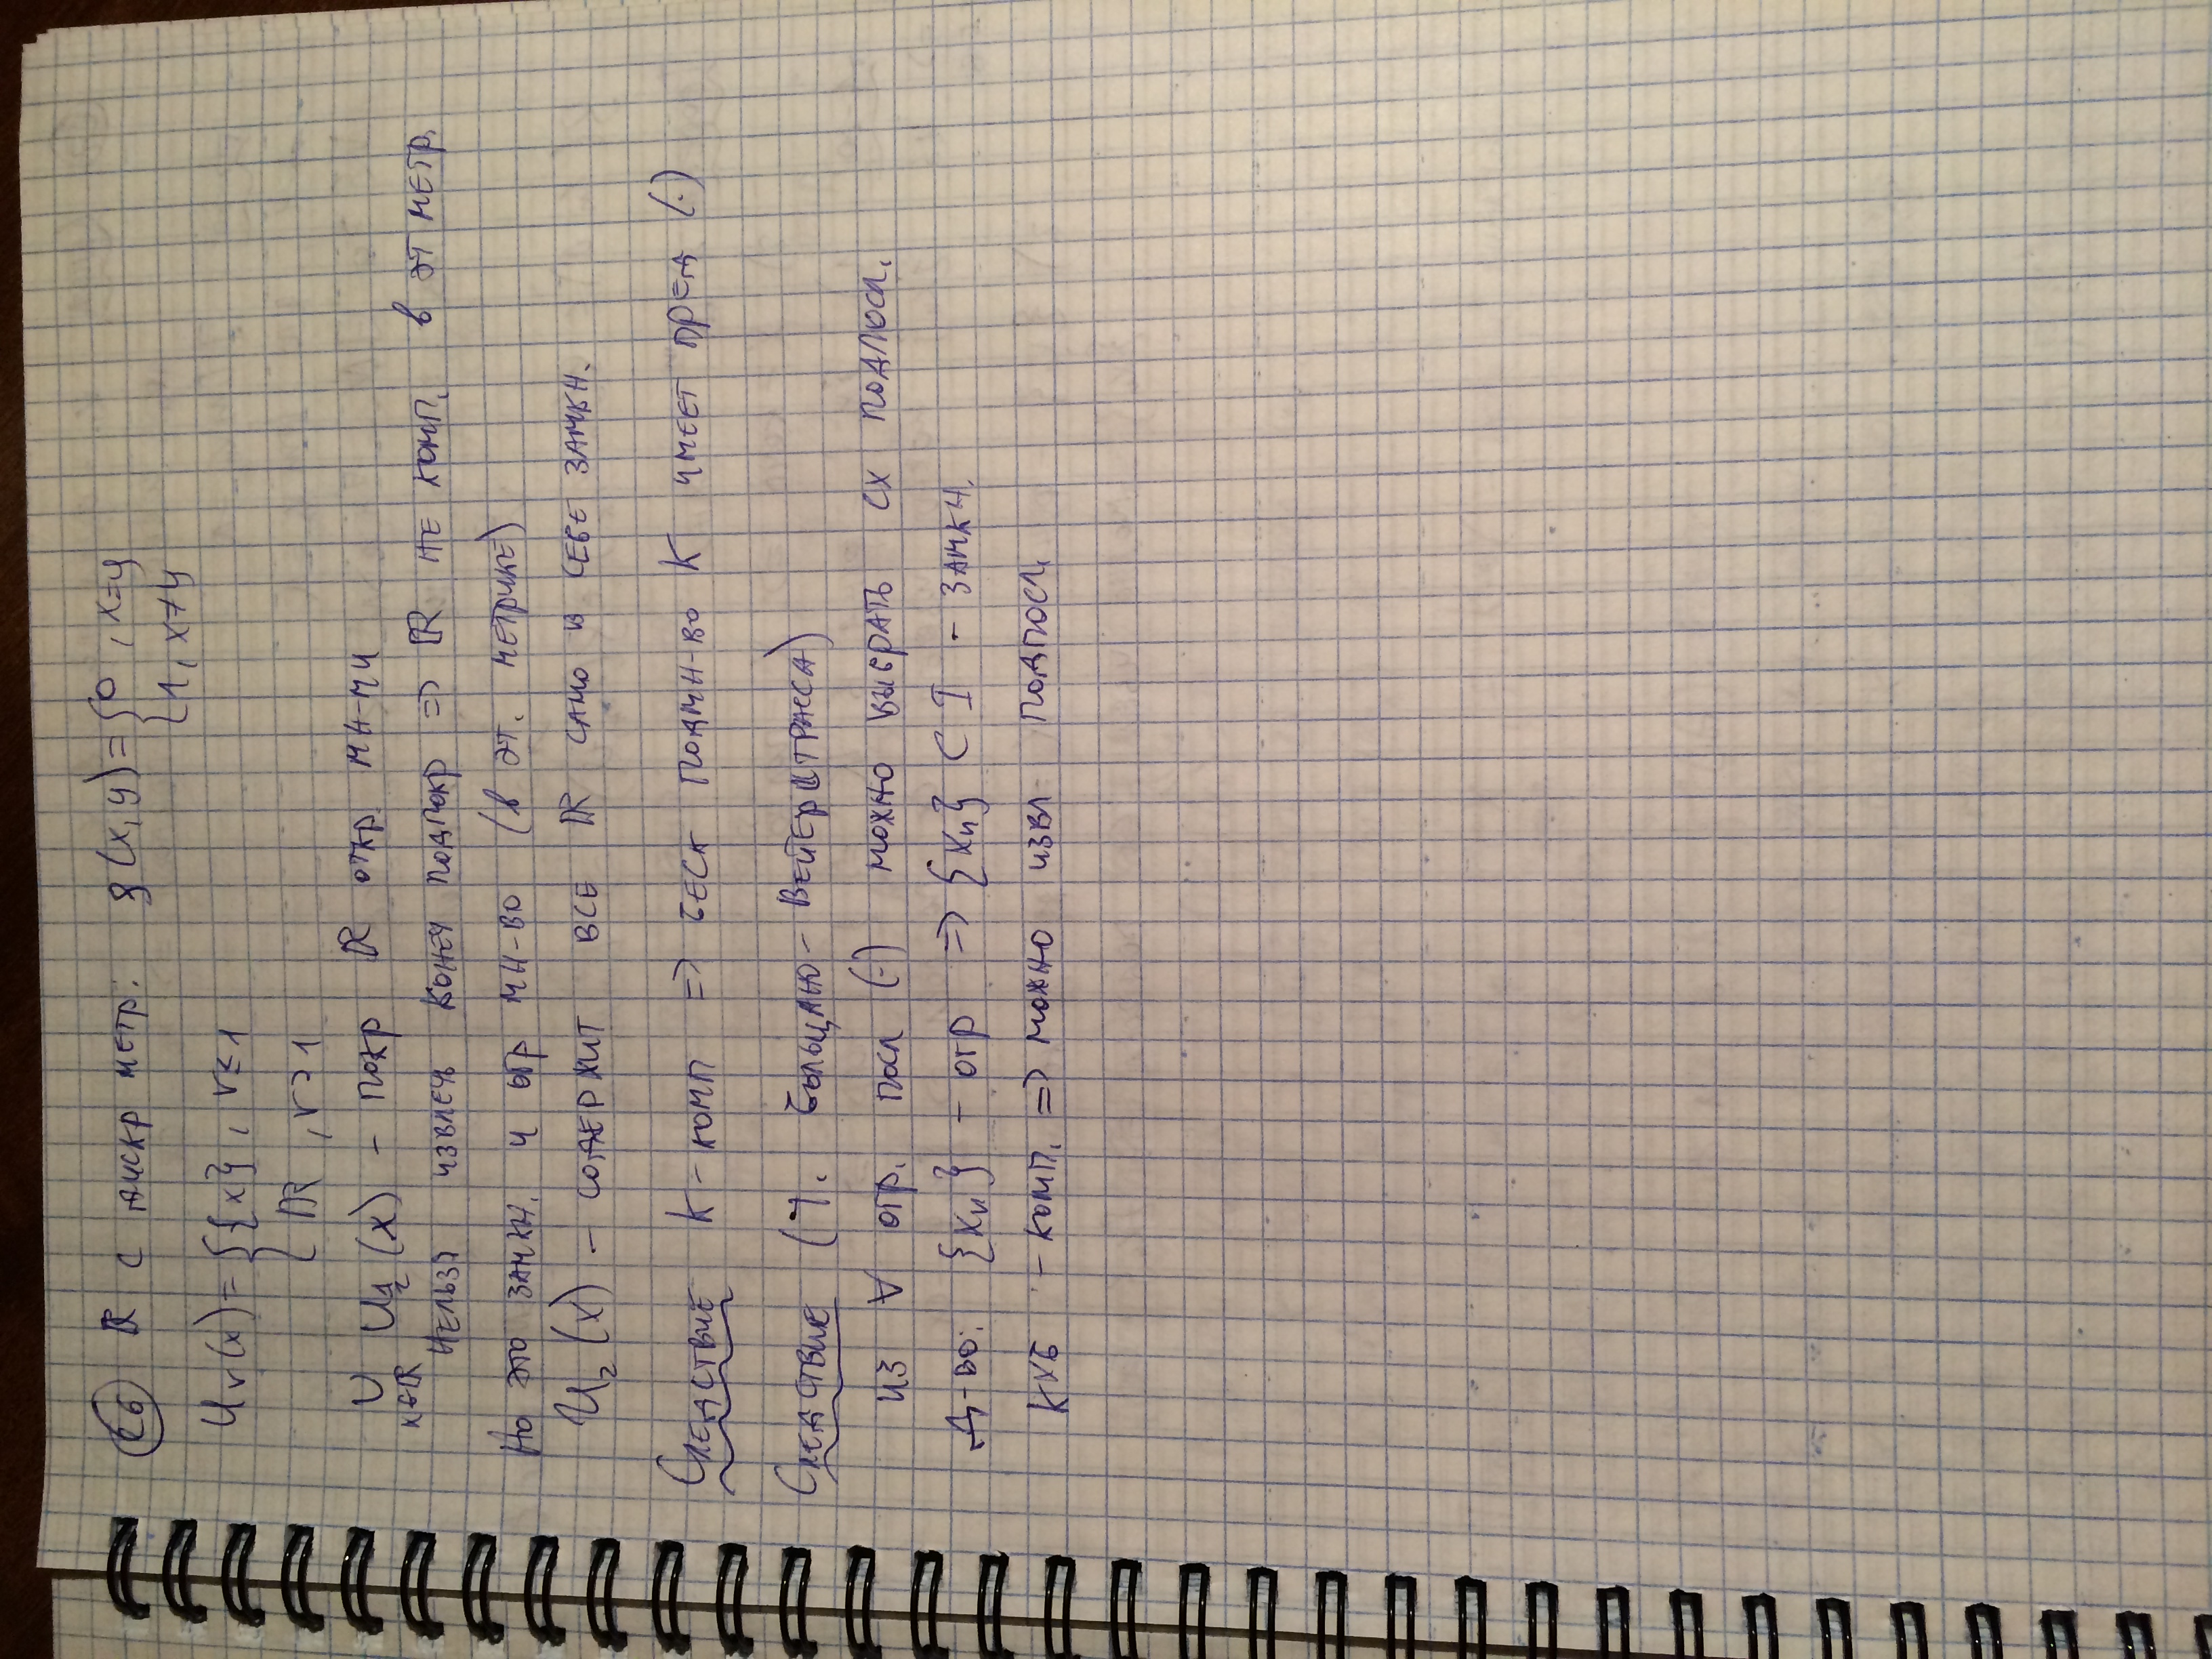 26 ℝ с дискр метр: ρ(x,y) = { 0, x=y
1, x≠y
U_r(x) = { {x}, r≤1
ℝ, r>1
∪_{x∈ℝ} U_{1/2}(x) – покр ℝ откр. мн-ми
нельзя извлечь конеч подпокр ⇒ ℝ не комп. в эт метр.
Но это замкн. и огр мн-во (в эт. метрике)
U_2(x) – содержит все ℝ само в себе замкн.
Следствие K – комп ⇒ беск подмн-во K имеет пред (·)
Следствие (Т. Больцано – Вейерштрасса)
из ∀ огр. посл (·) можно выбрать сх подпосл.
Д-во: {x_n} – огр ⇒ {x_n} ⊂ I – замкн.
куб – комп. ⇒ можно извл подпосл.